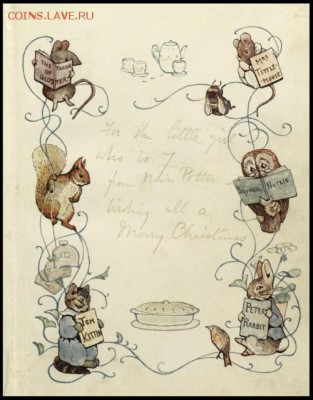 COINS.LAVE.RU
THE TAILOR
OF
GLOSTER
MRS
TITTLE-
MOUSE
For the little girl
who is 7
from Miss Potter
wishing all a
Merry Christmas
SQUIRREL NUTKIN
TOM
KITTEN
PETER
RABBIT